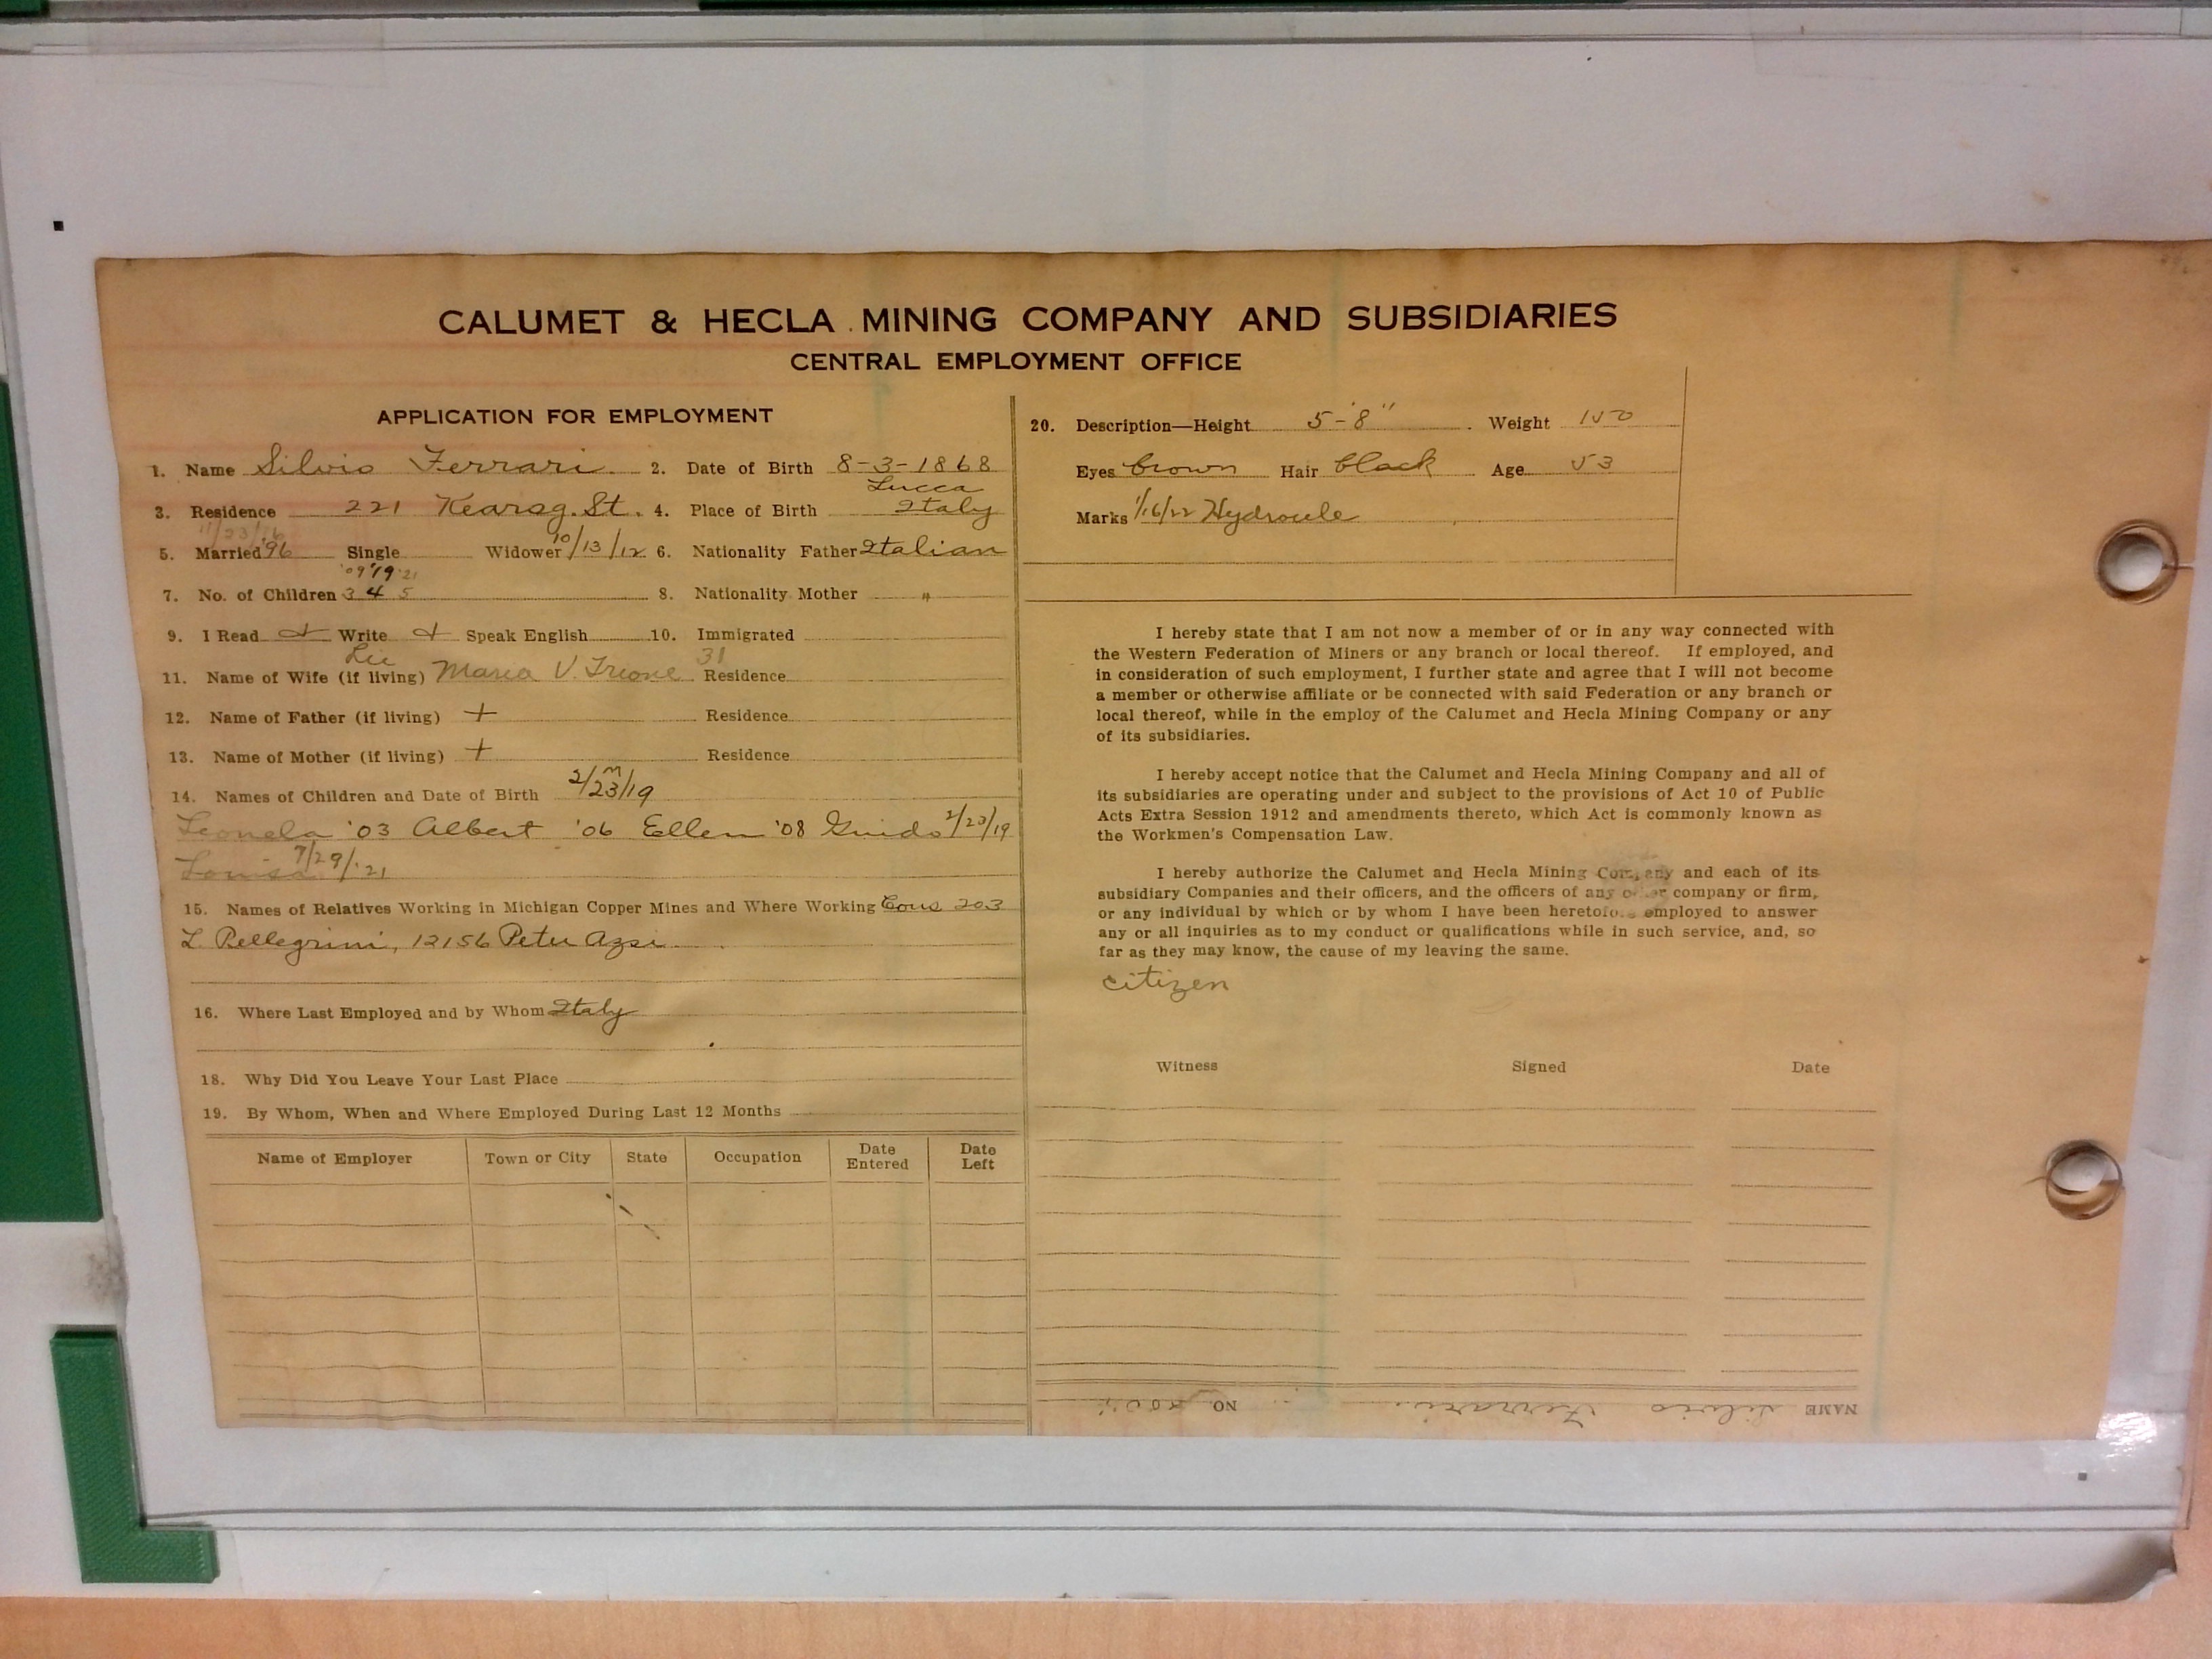 CALUMET & HECLA MINING COMPANY AND SUBSIDIARIES
CENTRAL EMPLOYMENT OFFICE
APPLICATION FOR EMPLOYMENT
1. Name Silvio Ferrari 2. Date of Birth 8-3-1868
Lucca
3. Residence 221 Kearsg. St. 4. Place of Birth Italy
11/23/16
5. Married '96 Single Widower 10/13/12 6. Nationality Father Italian
'09 '19 '21
7. No. of Children 3 4 5 8. Nationality Mother "
9. I Read + Write + Speak English 10. Immigrated
31
11. Name of Wife (if living) Maria V. Residence
12. Name of Father (if living) + Residence
13. Name of Mother (if living) + Residence
2/23/19
14. Names of Children and Date of Birth
Leonela '03 Albert '06 Ellen '08 Guido 2/23/19
Louisa 7/29/'21
15. Names of Relatives Working in Michigan Copper Mines and Where Working Cous 203
L. Pellegrini, 12156 Peter
16. Where Last Employed and by Whom Italy
18. Why Did You Leave Your Last Place
19. By Whom, When and Where Employed During Last 12 Months
Name of Employer Town or City State Occupation Date Entered Date Left
20. Description—Height 5-8" Weight 150
Eyes brown Hair black Age 53
Marks 1/16/22 Hydrocele
I hereby state that I am not now a member of or in any way connected with
the Western Federation of Miners or any branch or local thereof. If employed, and
in consideration of such employment, I further state and agree that I will not become
a member or otherwise affiliate or be connected with said Federation or any branch or
local thereof, while in the employ of the Calumet and Hecla Mining Company or any
of its subsidiaries.
I hereby accept notice that the Calumet and Hecla Mining Company and all of
its subsidiaries are operating under and subject to the provisions of Act 10 of Public
Acts Extra Session 1912 and amendments thereto, which Act is commonly known as
the Workmen's Compensation Law.
I hereby authorize the Calumet and Hecla Mining Company and each of its
subsidiary Companies and their officers, and the officers of any other company or firm,
or any individual by which or by whom I have been heretofore employed to answer
any or all inquiries as to my conduct or qualifications while in such service, and, so
far as they may know, the cause of my leaving the same.
citizen
Witness Signed Date
NAME Silvio Ferrari NO.